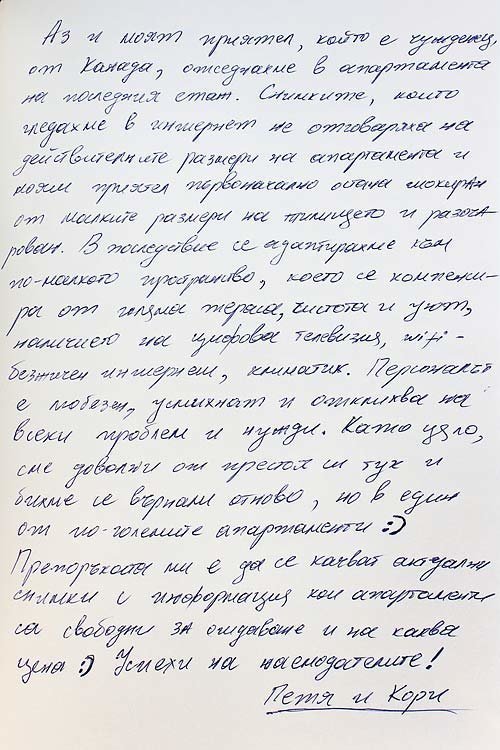 Аз и моят приятел, който е чужденец
от Канада, отседнахме в апартамента
на последния етаж. Снимките, които
гледахме в интернет не отговаряха на
действителните размери на апартамента и
моят приятел първоначално остана шокиран
от малките размери на жилището и разоча
рован. В последствие се адаптирахме към
по-малкото пространство, което се компенси-
ра от голяма тераса, чистота и уют,
наличието на цифрова телевизия, wifi-
безжичен интернет, климатик. Персоналът
е любезен, усмихнат и откликва на
всеки проблем и нужди. Като цяло,
сме доволни от престоя си тук и
бихме се върнали отново, но в един
от по-големите апартаменти :)
Препоръката ми е да се качват актуални
снимки и информация кои апартаменти
са свободни за отдаване и на каква
цена :) Успехи на наемодателите!
Петя и Кори